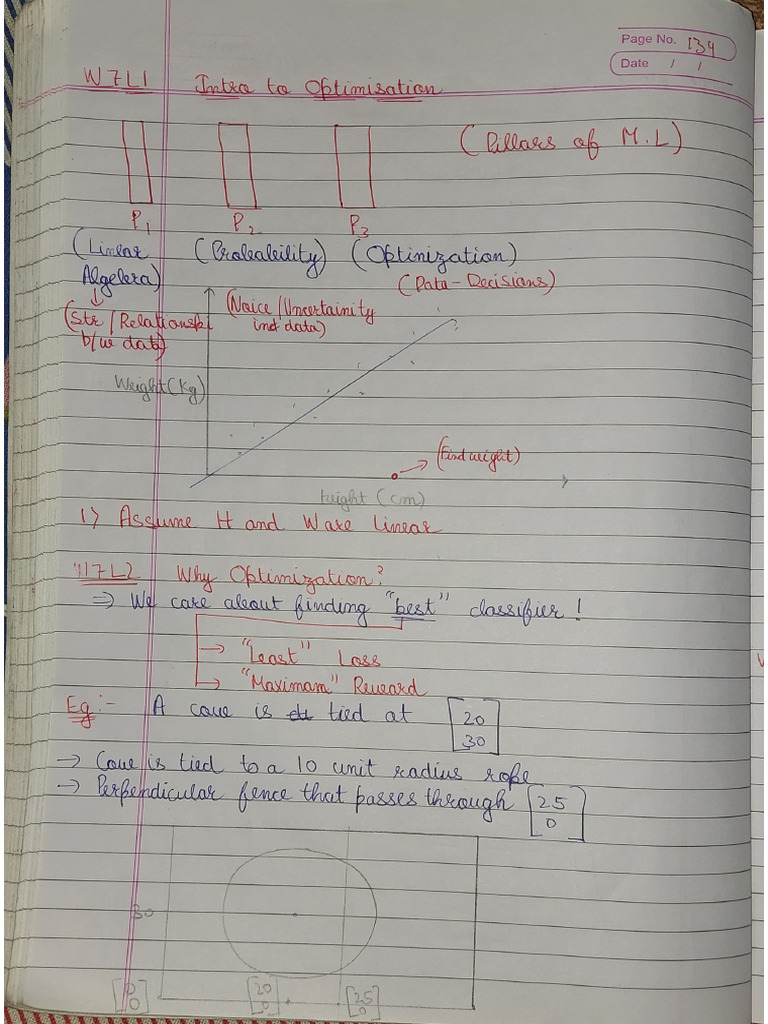 Page No. 134
Date / /
W7L1 Intro to Optimisation
(Pillars of M.L)
P1 P2 P3
(Linear Algebra) (Probability) (Optinization)
(Data-Decisions)
(Str/Relationship b/w data)
(Noice/Uncertainity
in data)
Weight(Kg)
(Find weight)
height (cm)
1) Assume H and W are linear
W7L2 Why Optimization?
⇒ We care about finding "best" classifier!
→ "Least" Loss
→ "Maximam" Reward
Eg:- A cow is tied at [20 30]
→ Cow is tied to a 10 unit radius rope
→ Perpendicular fence that passes through [25 0]
30
[0 0] [20 0] [25 0]